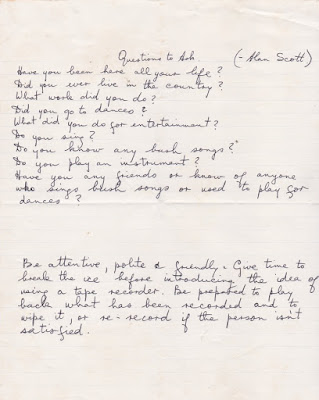 Questions to Ask (- Alan Scott)
Have you been here all your life?
Did you ever live in the country?
What work did you do?
Did you go to dances?
What did you do for entertainment?
Do you sing?
Do you know any bush songs?
Do you play an instrument?
Have you any friends or know of anyone
who sings bush songs or used to play for
dances?
Be attentive, polite & friendly. Give time to
break the ice before introducing the idea of
using a tape recorder. Be prepared to play
back what has been recorded and to
wipe it, or re-record if the person isn't
satisfied.